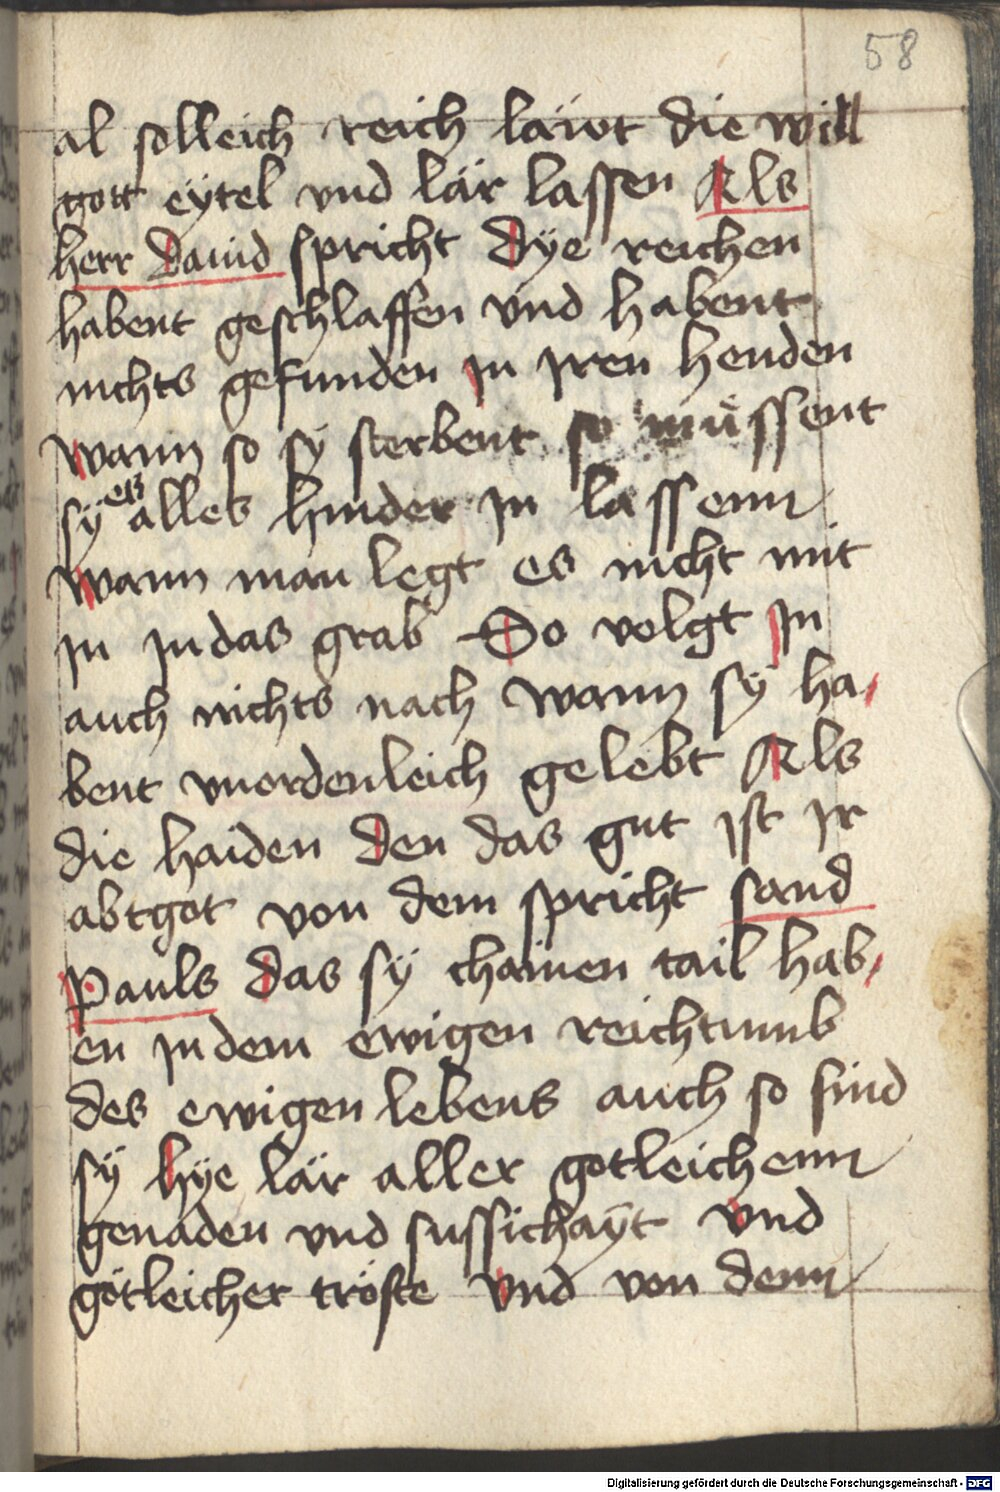 58
al solleich reich läwt die will
gott eÿtel vnd lär lassen Als
herr dauid spricht dÿe reichen
habent geschlaffen vnd habent
nichts gefunden jn jren henden
wann so sÿ sterbent so müssent
sÿ es alles hinder jn lassenn
wann man legt es nicht mit
jn jn das grab So volgt jn
auch nichts nach wann sÿ ha
bent vnordenleich gelebt Als
die haiden den das gut jst jr
abtgot von dem spricht sand
Pauls das sÿ chainen tail hab
en jn dem ewigen reichtumb
des ewigen lebens auch so sind
sÿ hÿe lär aller gotleichenn
genaden vnd sussichaÿt vnd
götleicher tröste vnd von denn
Digitalisierung gefördert durch die Deutsche Forschungsgemeinschaft - DFG